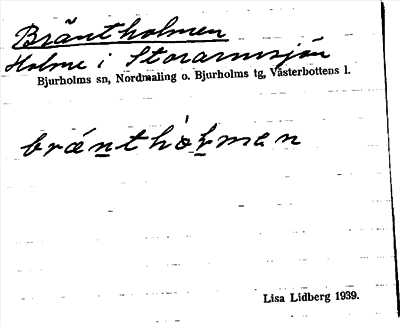 Bräntholmen
Holme i Storarmsjön
Bjurholms sn, Nordmaling o. Bjurholms tg, Västerbottens l.
brä́nthòłmen
Lisa Lidberg 1939.